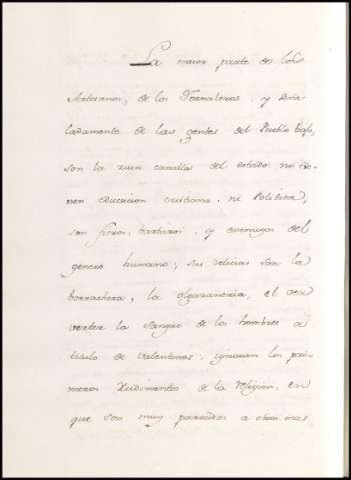 La maior parte de los
Artesanos, de los Jornaleros, y seña
ladamente de las gentes del Pueblo bajo,
son la ruin canalla del estado: no tie-
nen educacion cristiana, ni Politica,
son fieros, barbaros, y enemigos del
genero humano; sus delicias son la
borrachera, la olgazaneria, el ver
verter la sangre de los hombres a
titulo de valentones; ignoran los pri-
meros Rudimentos de la religion, en
que son muy parecidos a otros mas